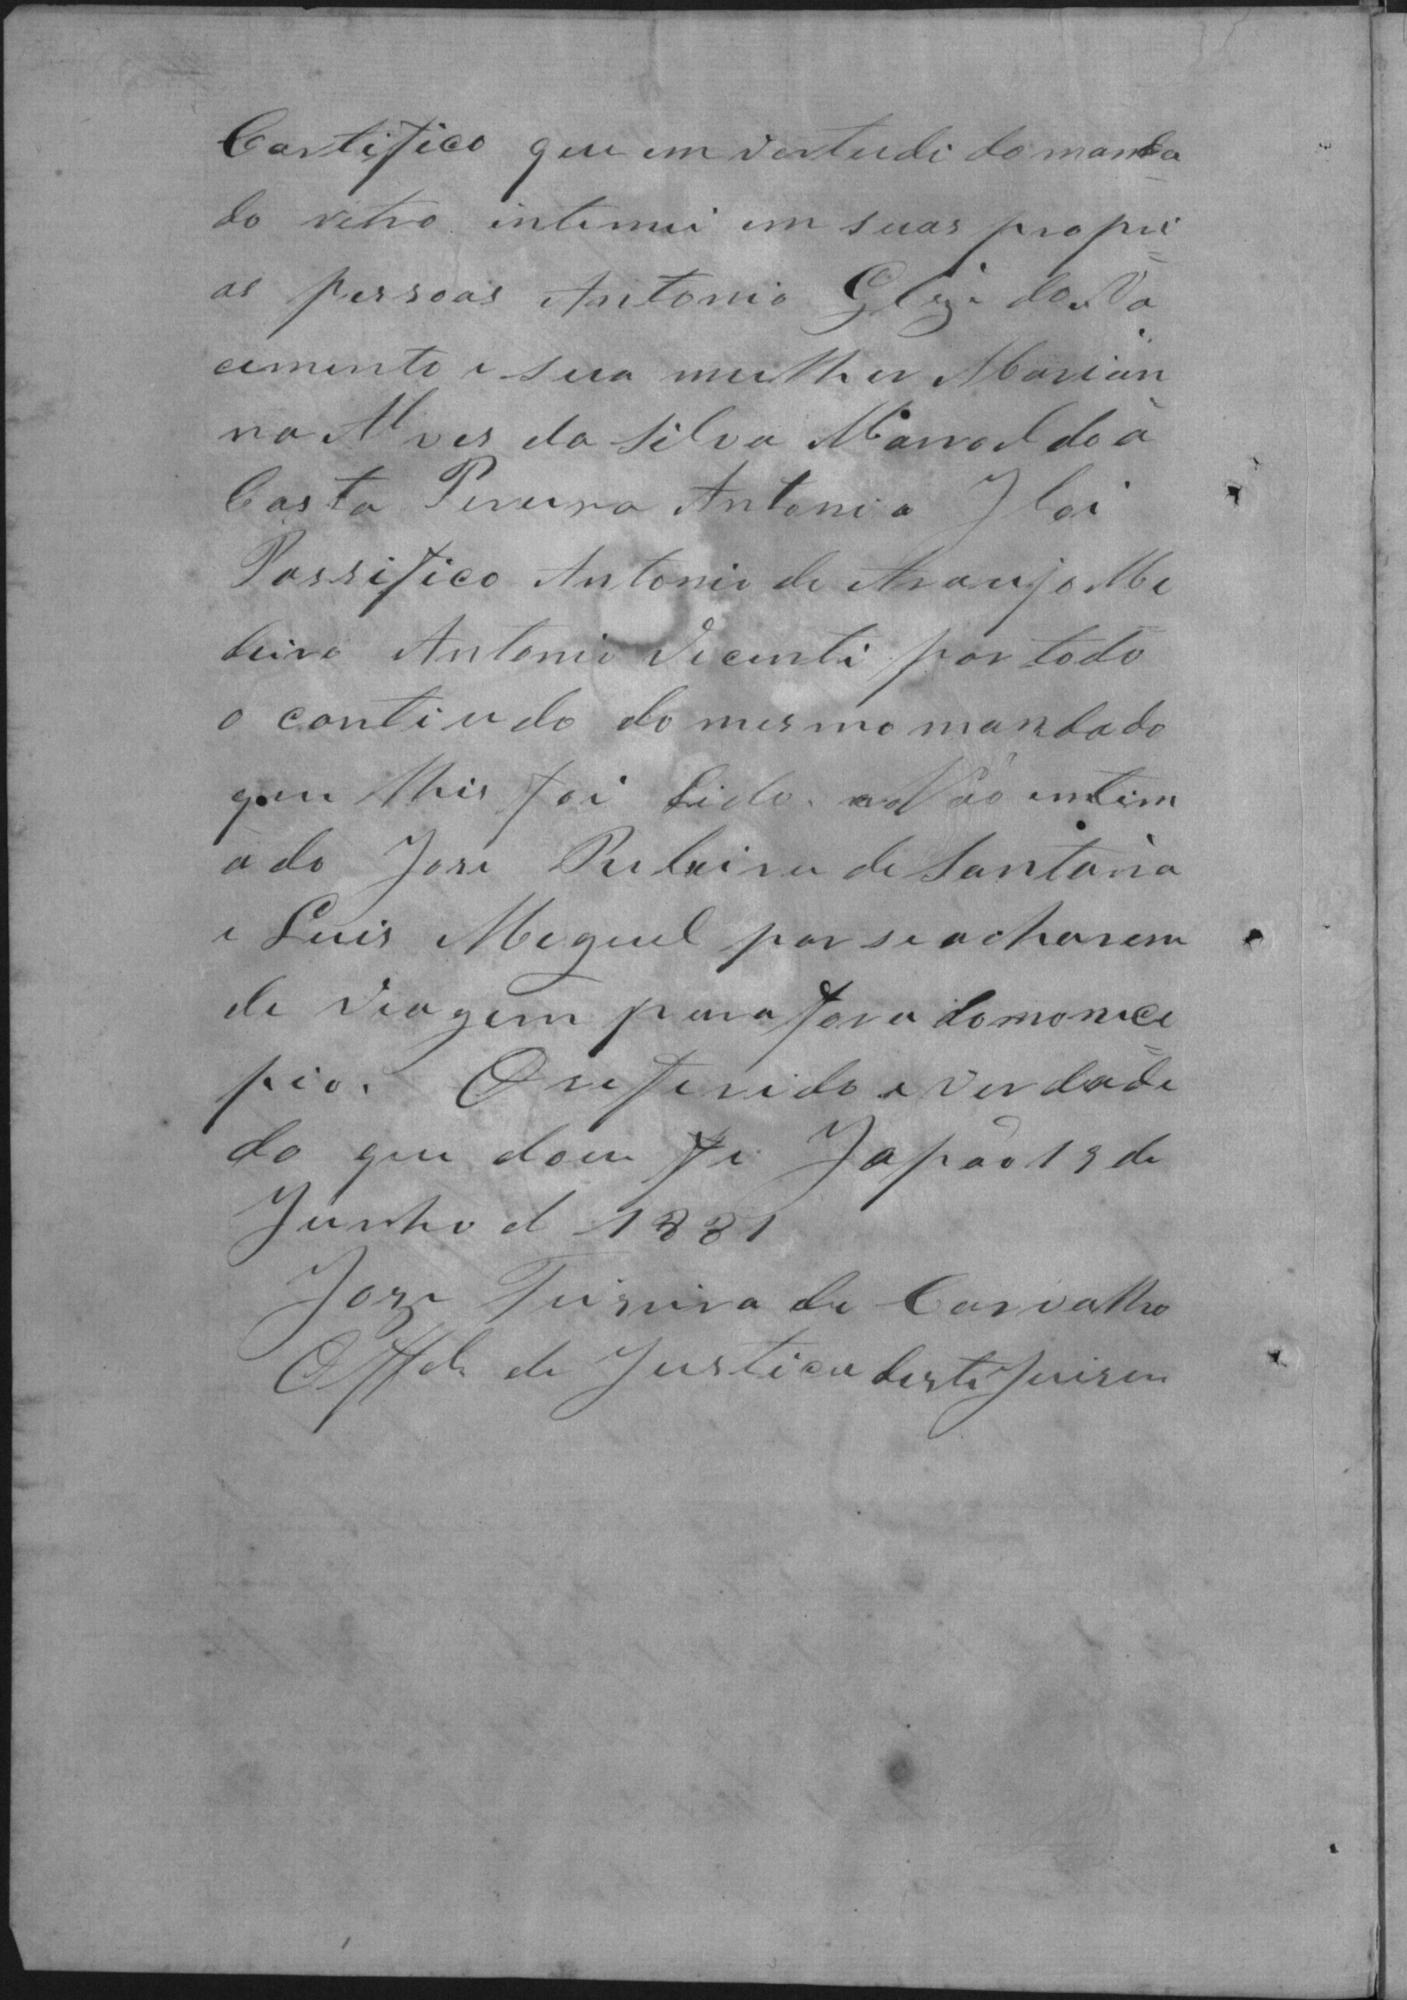 Certifico que em vertudi do manda
do retro intimei em suas propri
as pessoas Antonio Eloi do Na
cimento e sua mulher Marian
na Alves da Silva Manoel da
Costa Pereira Antonio Iloi
Passifico Antonio de Araujo Me
deiro Antonio Vicenti por todo
o contiudo do mesmo mandado
que lhis foi lido. Não intim
ado Jose Ribeiro de Santana
e Luis Meguel por se acharem
de viagem para fora do monice
pio. O referido e verdade
do que dou fe Japão 19 de
Junho d 1881
Joze Teixeira de Carvalho
Offal de Justica deste Juiso